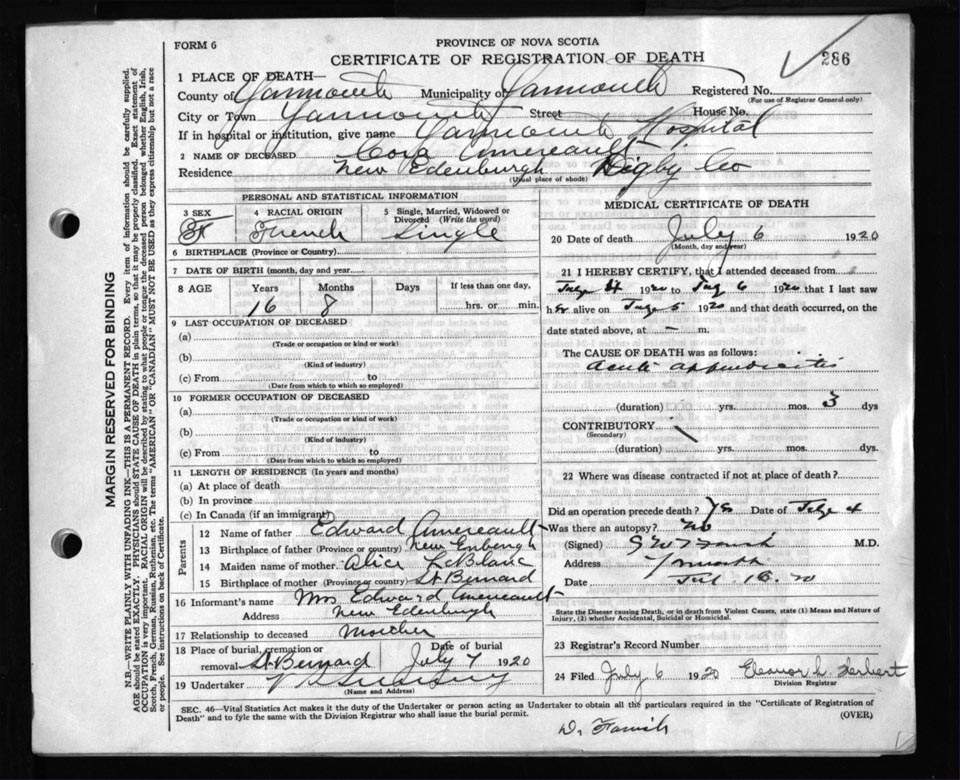 FORM 6
PROVINCE OF NOVA SCOTIA
CERTIFICATE OF REGISTRATION OF DEATH
286
1 PLACE OF DEATH—
County of Yarmouth Municipality of Yarmouth Registered No.
(For use of Registrar General only)
City or Town Yarmouth Street House No.
If in hospital or institution, give name Yarmouth Hospital
2 NAME OF DECEASED Cora Amereault
Residence New Edenburgh Digby Co
(Usual place of abode)
PERSONAL AND STATISTICAL INFORMATION
3 SEX
4 RACIAL ORIGIN
5 Single, Married, Widowed or Divorced (Write the word)
French Single
6 BIRTHPLACE (Province or Country)
7 DATE OF BIRTH (month, day and year
8 AGE Years Months Days If less than one day,
16 8 hrs. or min.
9 LAST OCCUPATION OF DECEASED
(a)
(Trade or occupation or kind or work)
(b)
(Kind of industry)
(c) From to
(Date from which to which so employed)
10 FORMER OCCUPATION OF DECEASED
(a)
(Trade or occupation or kind of work)
(b)
(Kind of industry)
(c) From to
(Date from which to which so employed)
11 LENGTH OF RESIDENCE (In years and months)
(a) At place of death
(b) In province
(c) In Canada (if an immigrant)
Parents
12 Name of father Edward Amereault
13 Birthplace of father (Province or country) New Enbergh
14 Maiden name of mother Alice LeBlanc
15 Birthplace of mother (Province or country) St Bernard
16 Informant's name Mrs Edward Amereault
Address New Edenburgh
17 Relationship to deceased Moether
18 Place of burial, cremation or removal St Bernard
Date of burial July 7 1920
19 Undertaker
(Name and Address)
MEDICAL CERTIFICATE OF DEATH
20 Date of death July 6 1920
(Month, day and year)
21 I HEREBY CERTIFY, that I attended deceased from
July 4 1920 to July 6 1920 that I last saw
her alive on July 5 1920 and that death occurred, on the
date stated above, at — m.
The CAUSE OF DEATH was as follows:
Acute appendicitis
(duration) yrs. mos. 3 dys
CONTRIBUTORY
(Secondary)
(duration) yrs. mos. dys
22 Where was disease contracted if not at place of death?
Did an operation precede death? Yes Date of July 4
Was there an autopsy? No
(Signed) M.D.
Address Yarmouth
Date Jul 16. 20
State the Disease causing Death, or in death from Violent Causes, state (1) Means and Nature of
Injury, (2) whether Accidental, Suicidal or Homicidal.
23 Registrar's Record Number
24 Filed July 6 1920 Eleanor L. Herbert
Division Registrar
SEC. 46—Vital Statistics Act makes it the duty of the Undertaker or person acting as Undertaker to obtain all the particulars required in the "Certificate of Registration of
Death" and to fyle the same with the Division Registrar who shall issue the burial permit.
(OVER)
D. Farish
MARGIN RESERVED FOR BINDING
N.B.—WRITE PLAINLY WITH UNFADING INK—THIS IS A PERMANENT RECORD. Every item of information should be carefully supplied.
AGE should be stated EXACTLY. PHYSICIANS should STATE CAUSE OF DEATH in plain terms, so that it may be properly classified. Exact statement of
OCCUPATION is very important. RACIAL ORIGIN will be described by stating to what people or tongue the deceased person belonged whether English, Irish,
Scotch, French, German, Russian, Ruthenian, etc. The terms "AMERICAN" or "CANADIAN" MUST NOT BE USED as they express citizenship but not a race
or people. See instructions on back of Certificate.